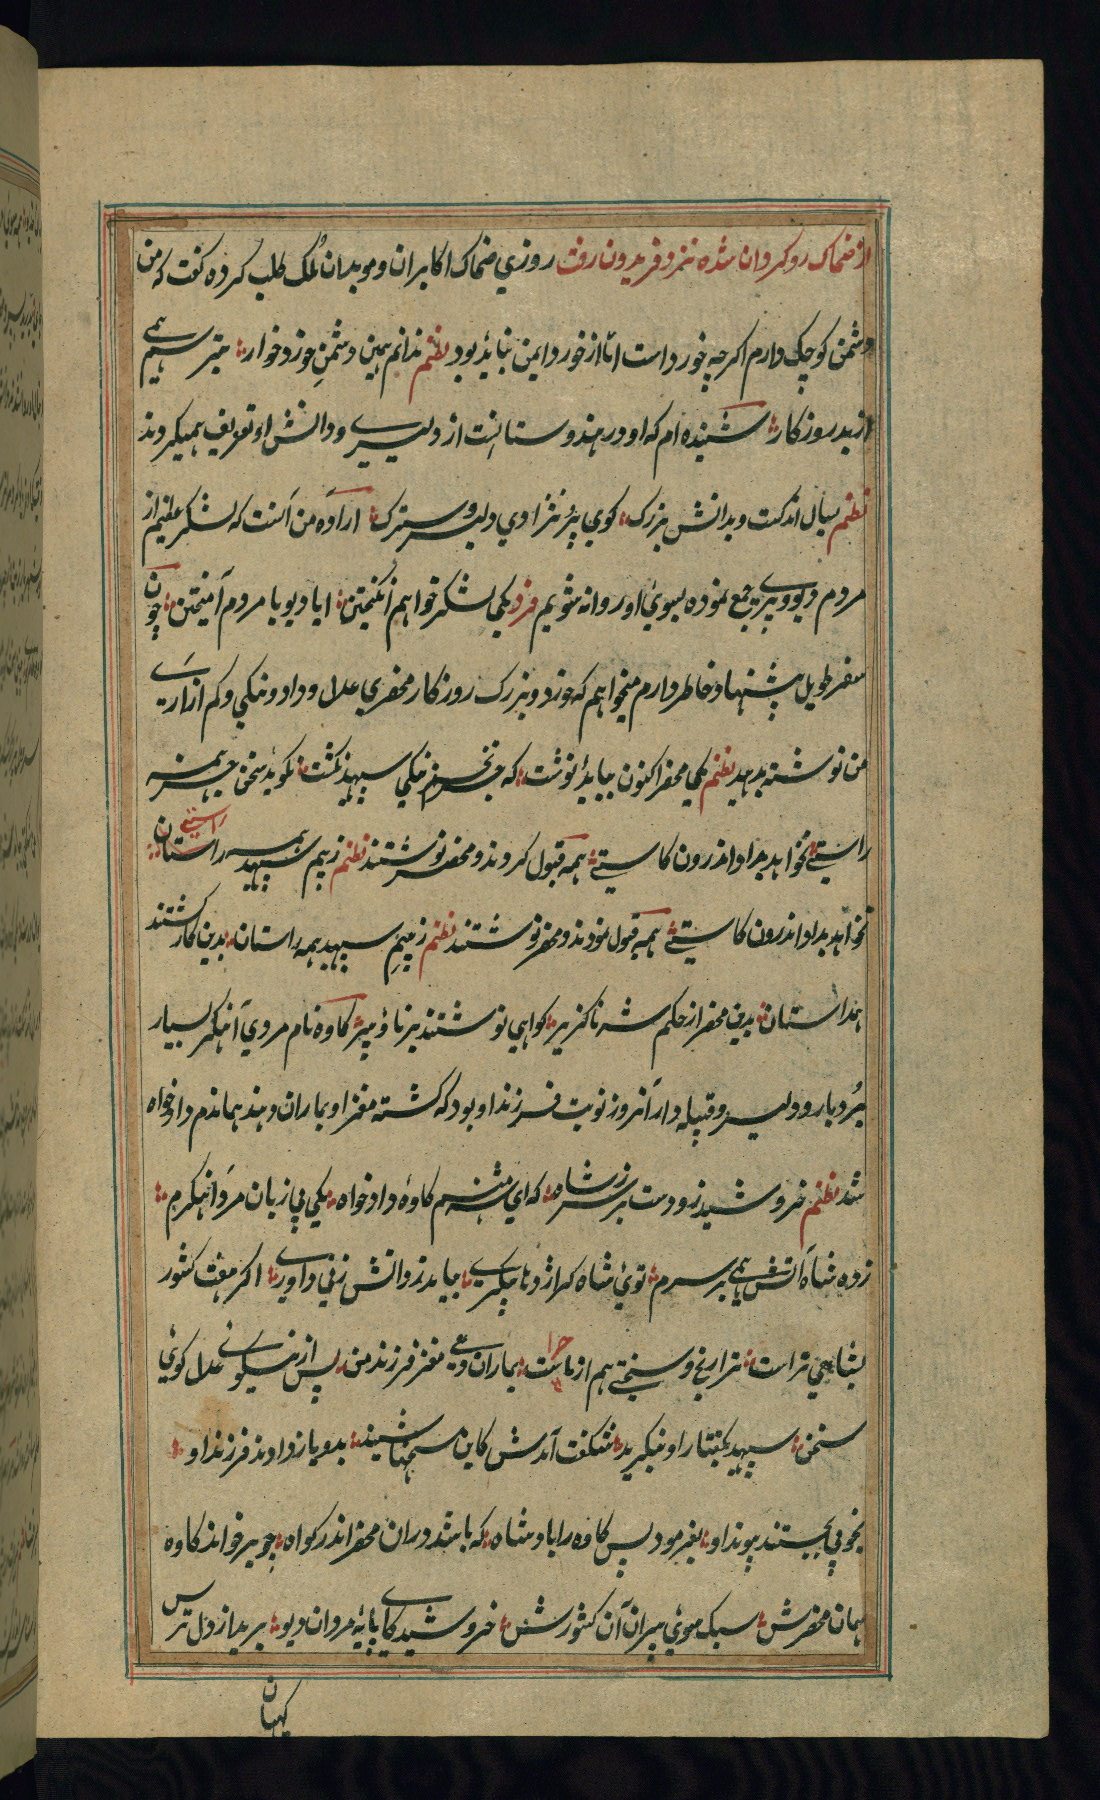 از ضحاک روکردان شده نزد فریدون رفت روزي ضحاک اکابران و موبدان ملک طلب کرده کفت که من
دشمن کوچک دارم اکرچه خورد است امّا از خورد ایمن نباید بود نظم ندانم همین دشمنِ خورد و خوار بترسم همی
از بد روزکار شنیده ام که او در هندوستانست از دلیری و دانش او تعریف همیکردند
نظم بسال اندکست و بدانش بزرک کوي پر نژادي دلیر و سترک اراده من آنست که لشکر عظیم از
مردم و دیو و پري جمع نموده بسوئ او روانه شویم فرد یکي لشکر خواهم انکیختن ابا دیو با مردم آمیختن چون
سفر طویل پیشنهاد خاطر دارم میخواهم که خورد و بزرک روزکار محضري عدل و داد و نیکي و کم ازاری
من نوشته بدهید نظم یکي محضر اکنون بباید نوشت که جز تخم نیکي سپهبد نکشت نکوید سخن جز همه
راستی نخواهد بداد اندرون کاستی همه قبول کردند و محضر نوشتند نظم ز بیم سپهبد همه راستان راستی
نخواهد بداد اندرون کاستی همه قبول نمودند و محضر نوشتند نظم ز بیمِ سپهبد همه راستان بدین کار کشتند
همداستان بدین محضر از حکم شه ناکزیر کواهي نوشتند برنا و پیر کاوه نام مردي آهنکر بسیار
بُردبار و دلیر و قبیله دار آنروز نوبت فرزند او بود که کشته مغز او بماران دهند هماندم دادخواه
شد نظم خروشید زد دست بر سر ز شاه که اي شه منم کاوۀ دادخواه یکي بي زبان مرد آهنکرم
زده شاه آتش همی بر سرم توئ شاه کر اژدها پیکری بباید زدانش زني داوری اکر هفت کشور
بشاهي تراست چرا رنج و سختي هم از ماست بماران دهی مغز فرزند من پس از نیکوئی عدل کوئ
سخن سپهبد بکفتار او بنکرید شکفت آمدش کاین سخنها شنید بدو باز دادند فرزند او
بخوبي بجستند پیوند او بفرمود پس کاوه را بادشاه که باشد دران محضر اندر کواه چو برخواند کاوه
همان محضرش سبک سوئ پیران آن کشورش خروشید کای پایۀ مردان دیو بریده از دل ترس
کیهان